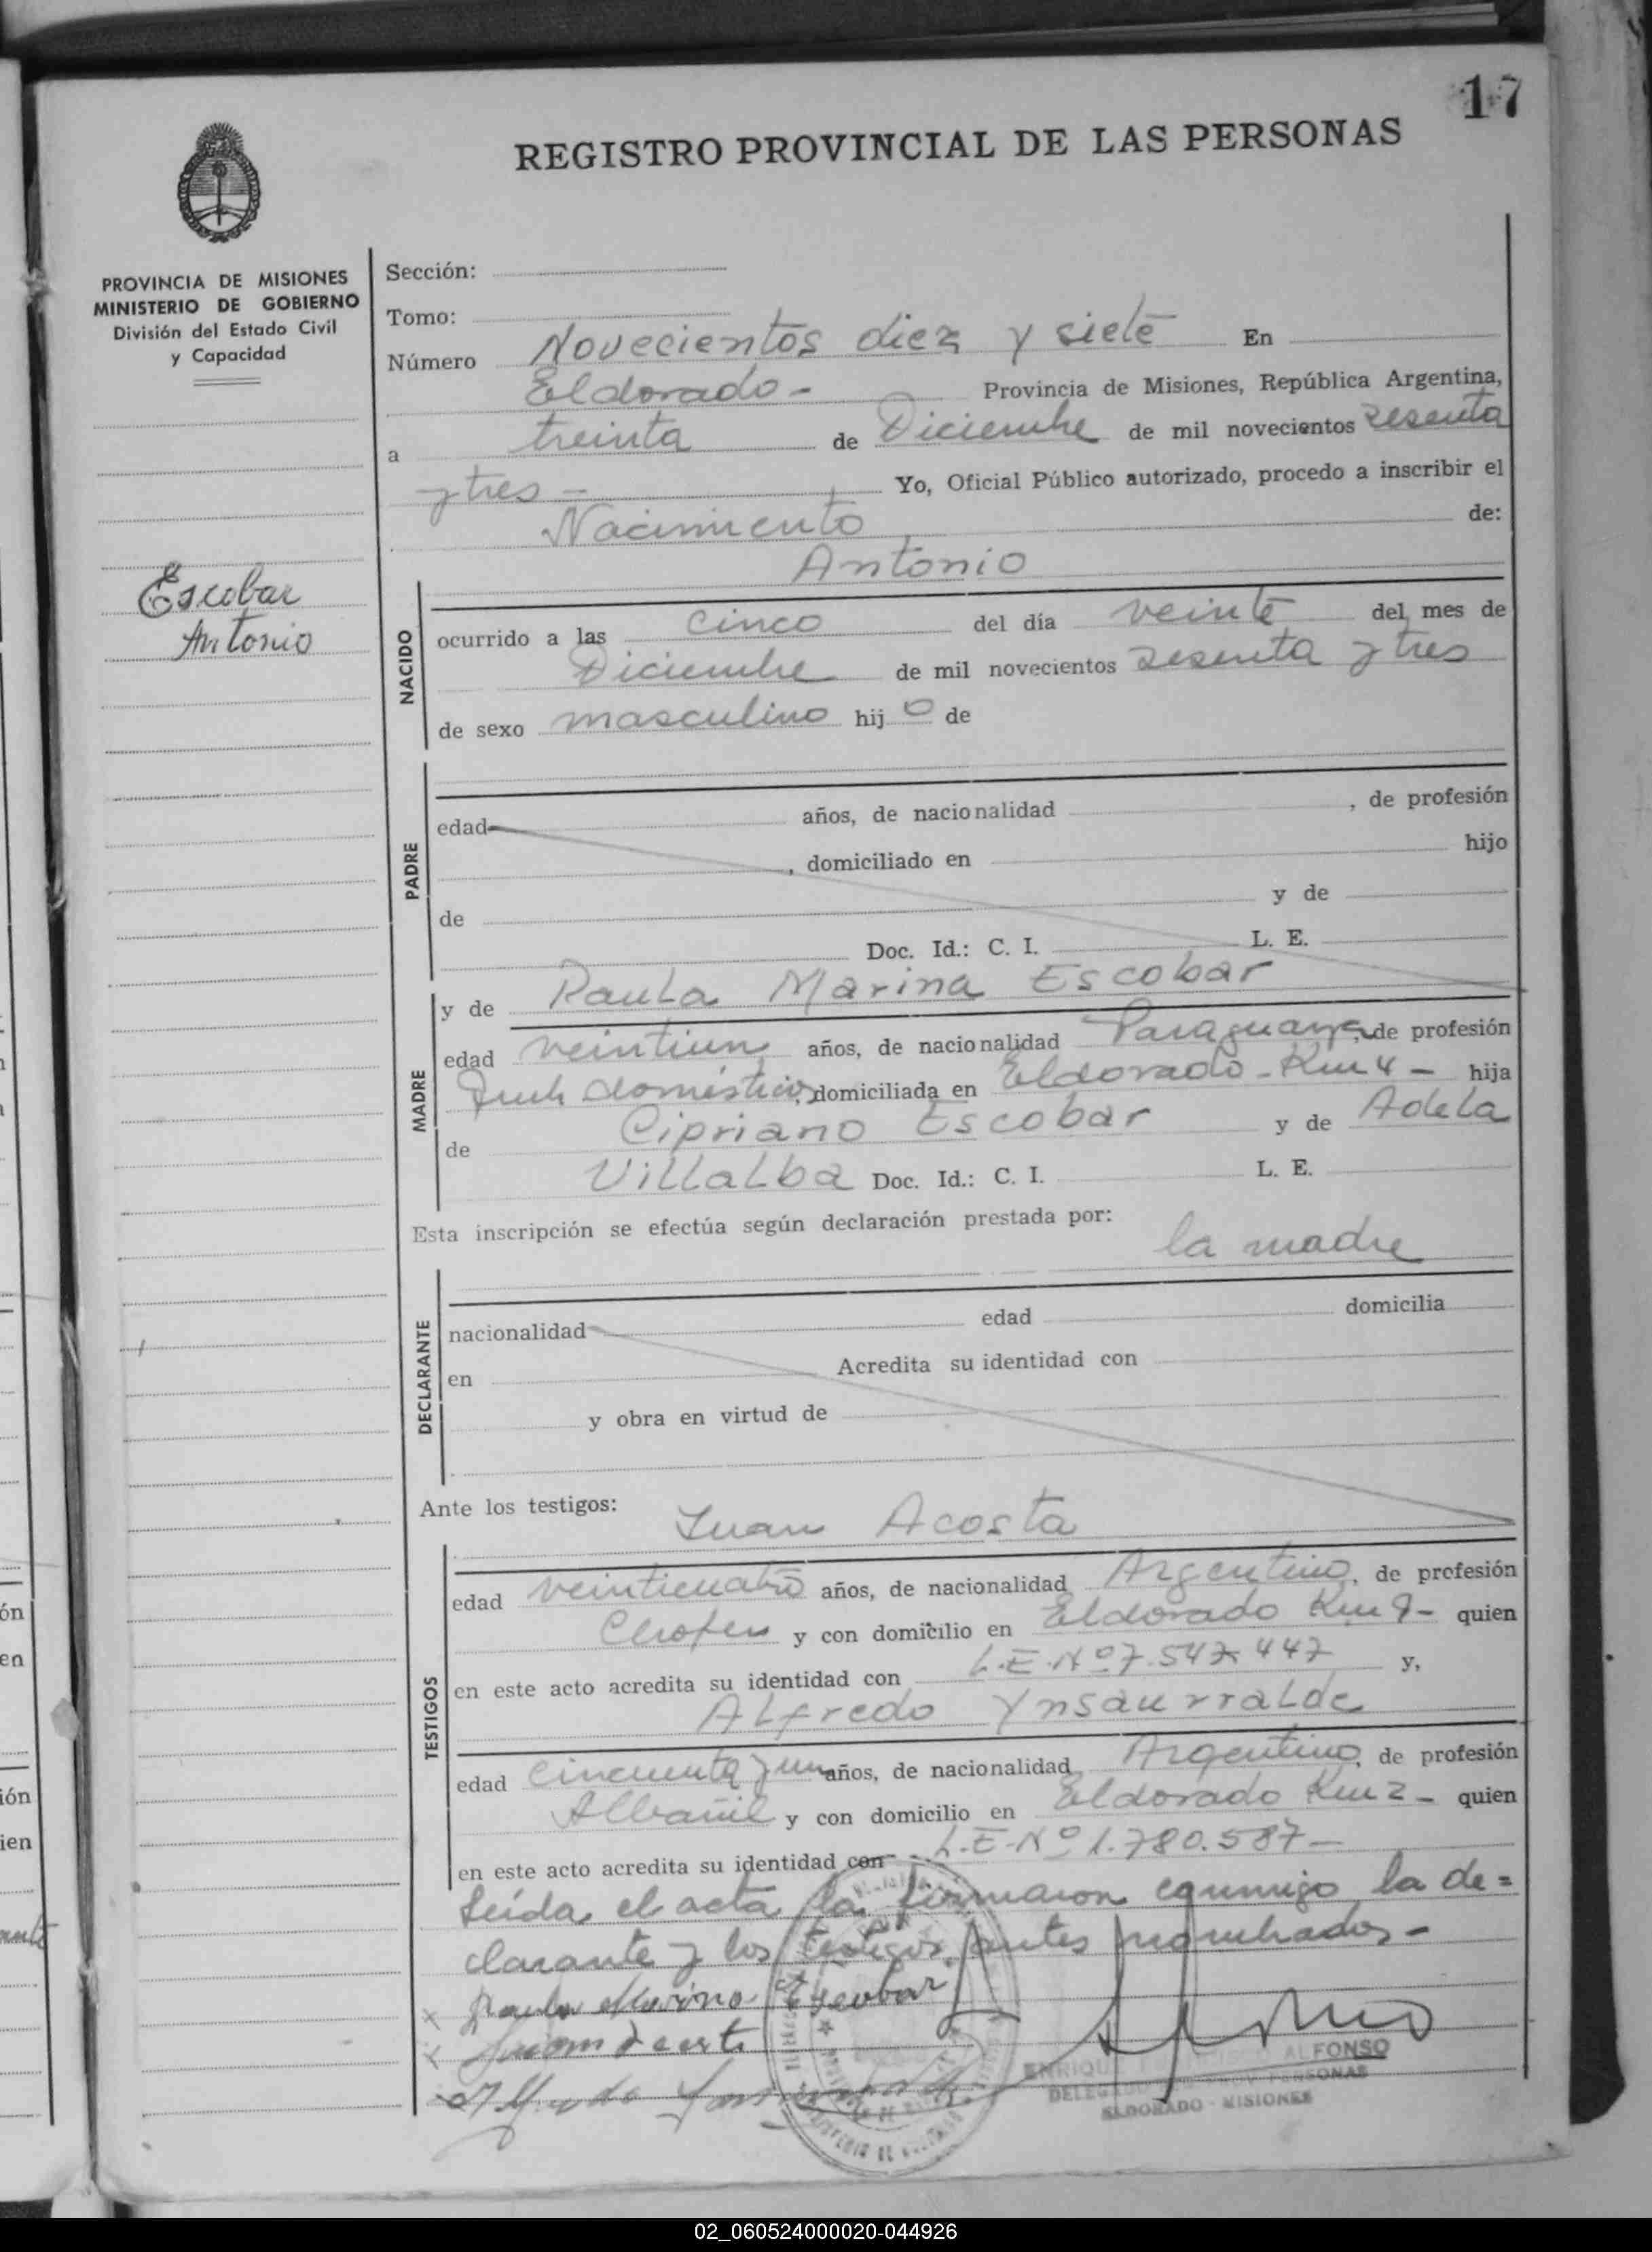 17
REGISTRO PROVINCIAL DE LAS PERSONAS
PROVINCIA DE MISIONES
MINISTERIO DE GOBIERNO
División del Estado Civil
y Capacidad
Escobar
Antonio
Sección:
Tomo:
Número Novecientos diez y siete En
Eldorado - Provincia de Misiones, República Argentina,
a treinta de Diciembre de mil novecientos sesenta
y tres - Yo, Oficial Público autorizado, procedo a inscribir el
Nacimiento de:
Antonio
NACIDO
ocurrido a las cinco del día veinte del mes de
Diciembre de mil novecientos sesenta y tres
de sexo masculino hij o de
PADRE
edad años, de nacionalidad , de profesión
, domiciliado en hijo
de y de
Doc. Id.: C. I. L. E.
MADRE
y de Paula Marina Escobar
edad veintiun años, de nacionalidad Paraguaya, de profesión
domésticos, domiciliada en Eldorado - Km 4 - hija
de Cipriano Escobar y de Adela
Villalba Doc. Id.: C. I. L. E.
Esta inscripción se efectúa según declaración prestada por:
la madre
DECLARANTE
nacionalidad edad domicilia
en Acredita su identidad con
y obra en virtud de
Ante los testigos: Juan Acosta
TESTIGOS
edad veinticuatro años, de nacionalidad Argentino, de profesión
Chofer y con domicilio en Eldorado Km 9 - quien
en este acto acredita su identidad con L.E. Nº 7.547.447 y,
Alfredo Ynsaurralde
edad cincuenta y un años, de nacionalidad Argentino, de profesión
Albañil y con domicilio en Eldorado Km 2 - quien
en este acto acredita su identidad con L.E. Nº 1.780.587 -
Leída el acta la firmaron conmigo la de=
clarante y los testigos antes nombrados -
x Paula Marina Escobar
x Juan
Alfredo
ENRIQUE ALFONSO
ELDORADO - MISIONES
02_060524000020-044926